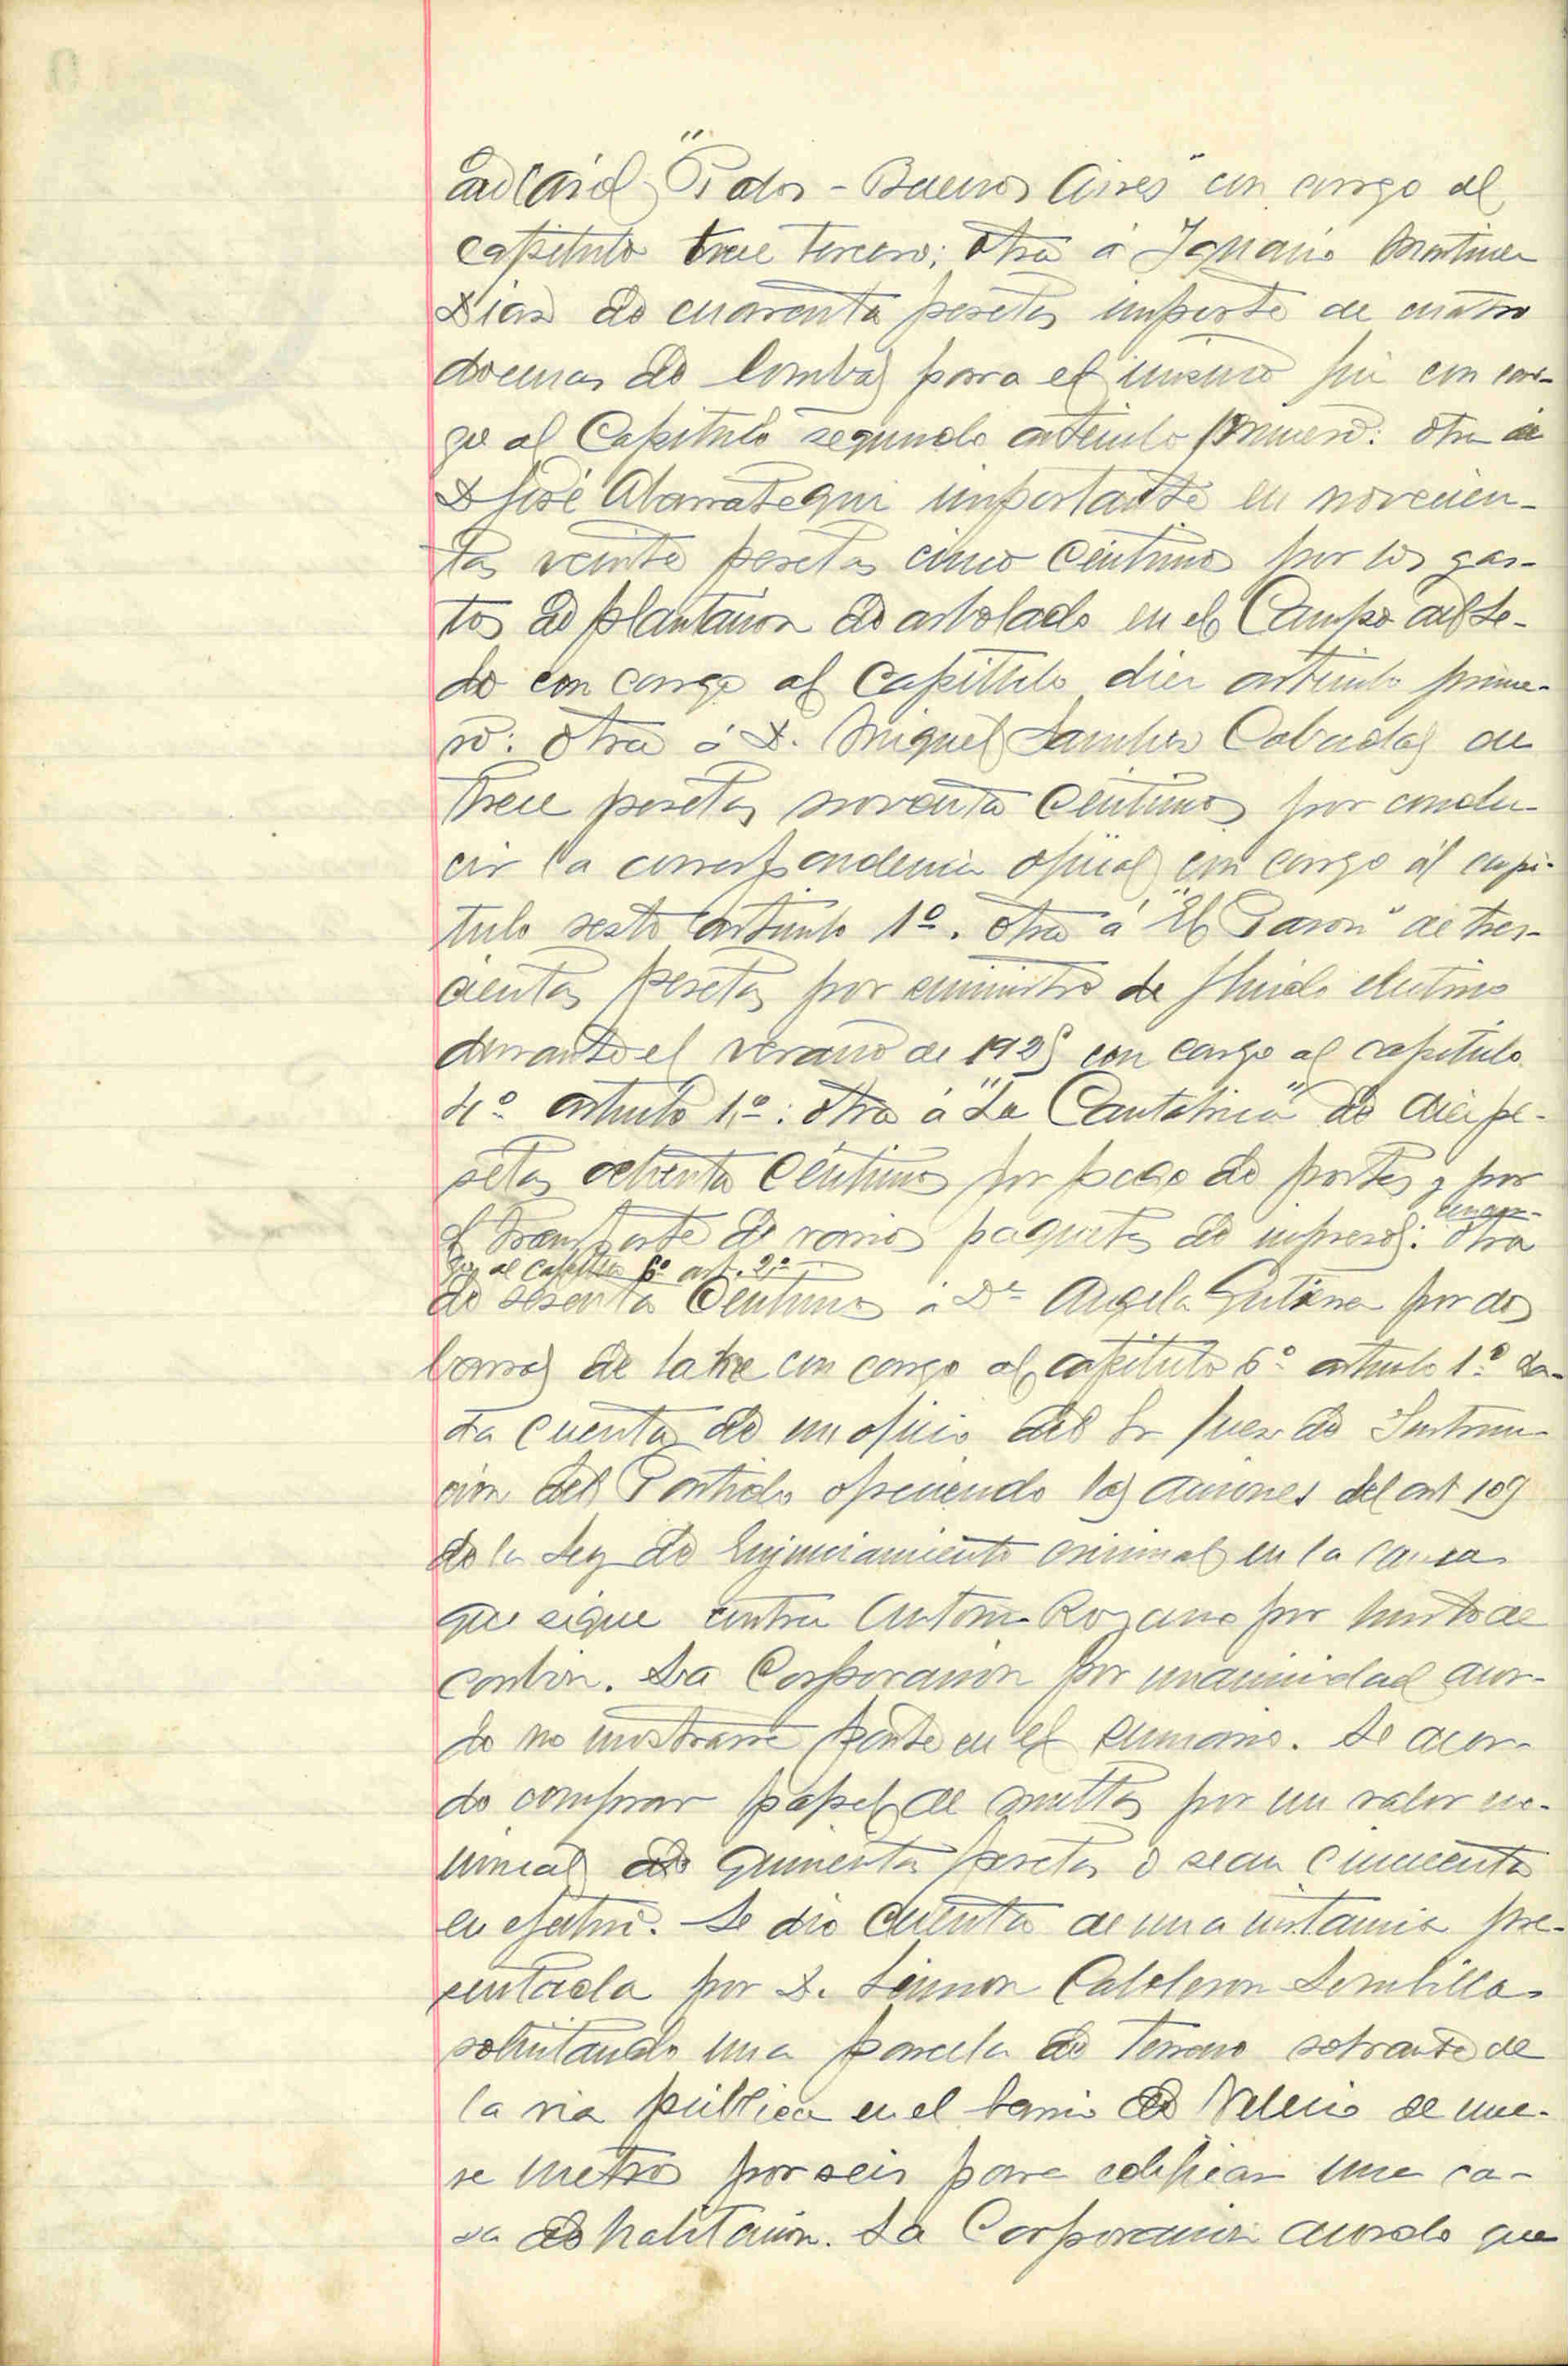 "Palos - Buenos Aires" con cargo al
capitulo trece tercero; otra á Ignacio Martinez
Diaz de cuarenta pesetas importe de cuatro
docenas de bombas para el mismo fin con car-
go al Capitulo segundo articulo primero: otra á
D José Abarrategui importante en novecien-
tas veinte pesetas cinco centimos por los gas-
tos de plantacion de arbolado en el Campo del Se-
do con cargo al capitulo diez articulo prime-
ro: otra á D. Miguel Sanchez Cabadas de
trece pesetas noventa centimos por condu-
cir la correspondencia oficial con cargo al capi-
tulo sesto articulo 1º. otra á "El Pason" de tres-
cientas pesetas por suministro de fluido electrico
durante el verano de 1925 con cargo al capitulo
4º articulo 1º: otra á "La Cantabrica" de diez pe-
setas ochenta centimos por pago de portes y por
el transporte de varios paquetes de impresos: con car-
go al capitulo 6º art. 2º otra
de sesenta centimos á Dª Angela Gutierrez por dos
barras de lacre con cargo al capitulo 6º articulo 1º da-
da cuenta de un oficio del Sr Juez de Instruc-
cion del Partido ofreciendo las acciones del art 109
de la Ley de Enjuiciamiento criminal en la causa
que sigue contra Antonio Rozano por hurto de
carbon. La Corporacion por unanimidad acor-
do no mostrarse parte en el sumario. Se acor-
do comprar papel de multas por un valor no-
minal de quinientas pesetas o sean cincuenta
en efectivo. Se dio cuenta de una instancia pre-
sentada por D. Simon Calderon Sembilla
solicitando una parcela de terreno sobrante de
la via publica en el barrio de Velecio de nue-
ve metros por seis para edificar una ca-
sa de habitacion. La Corporacion acordo que